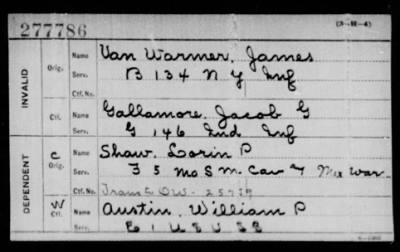 277786
(3-M-4)
INVALID
Orig. Name Van Warmer, James
Serv. B 134 N Y Inf
Ctf. No.
Ctf. Name Gallamore, Jacob G
Serv. G 146 Ind Inf
DEPENDENT
C Orig. Name Shaw, Lorin P
Serv. F 5 Mo S M Cav & Mex War
Ctf. No. Trans C OW - 257
W Ctf. Name Austin, William P
Serv. 1 U S V